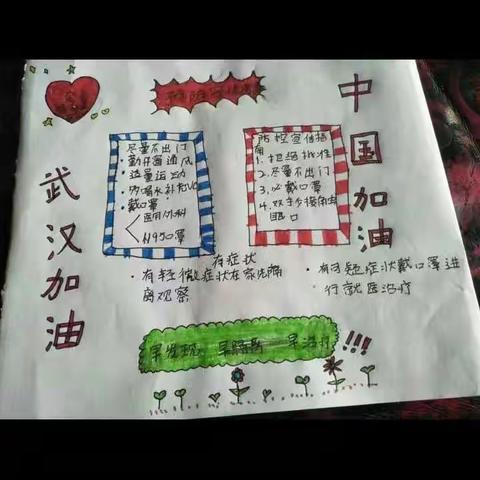 中国加油
武汉加油
尽量不出门
勤开窗通风
适量运动
多喝水
戴口罩
医用外科
N95口罩
防控宣传
1.拒绝
2.尽量不出门
3.必戴口罩
4.双手
眼口
有症状
有轻微症状在家先隔
离观察
有可疑症状戴口罩进
行就医治疗
早发现 早隔离 早治疗!!!